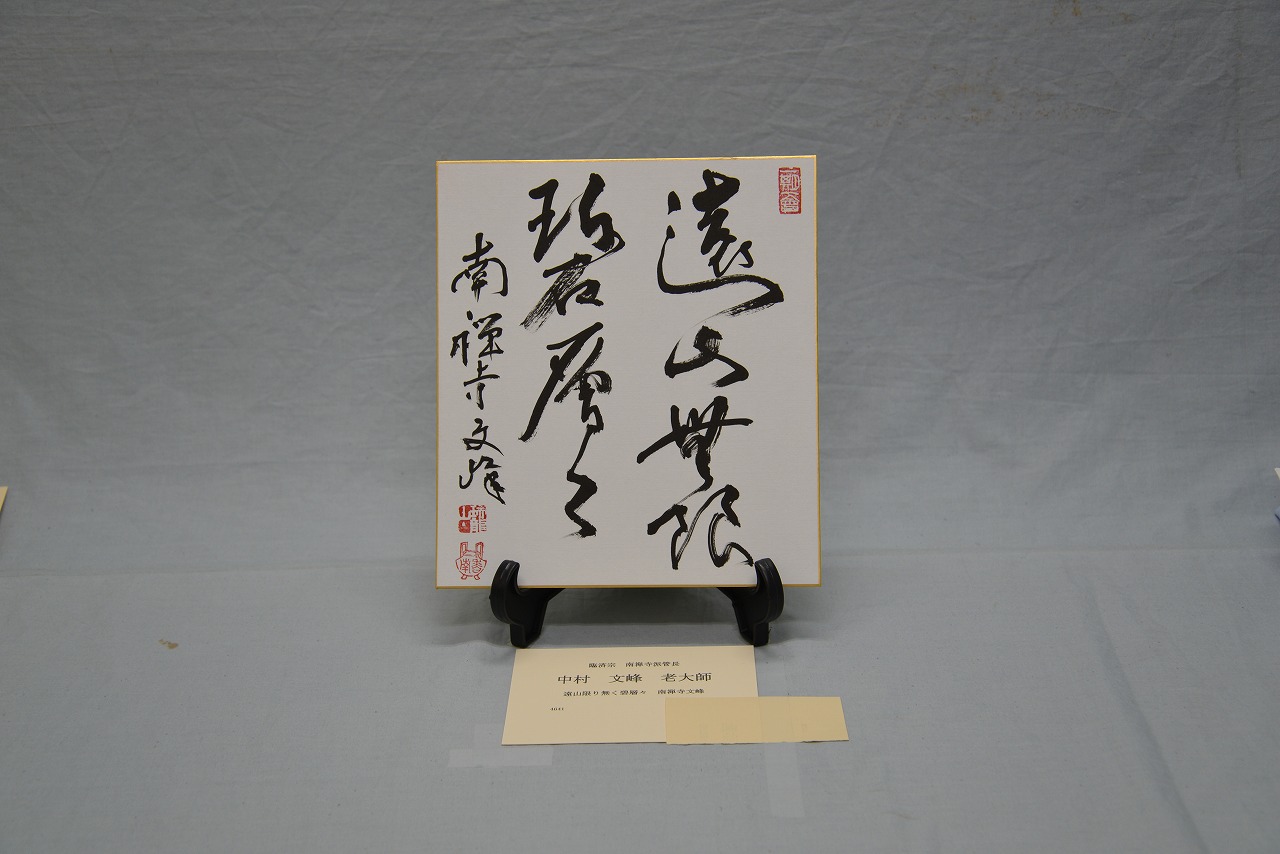 遠山無限
碧層々
南禅寺文峰
臨済宗　南禅寺派管長
中村　文峰　老大師
遠山限り無く碧層々　南禅寺文峰
4041